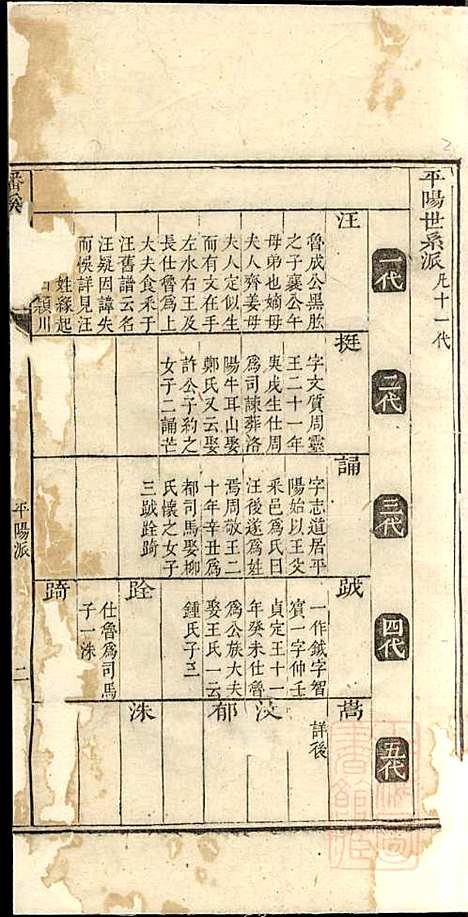 平陽世系派凡十一代
一代
汪
魯成公黑肱
之子襄公午
母弟也嫡母
夫人齊姜母
夫人定姒生
而有文在手
左水右王及
長仕魯爲上
大夫食釆于
汪舊譜云名
汪疑因諱失
而悮詳見汪
姓緣起
潁川
二代
挺
字文質周靈
王二十一年
庚戌生仕周
爲司諫葬洛
陽牛耳山娶
鄭氏又云娶
許公子約之
女子二誦芒
三代
誦
字志道居平
陽始以王父
釆邑爲氏曰
汪後遂爲姓
焉周敬王二
十年辛丑爲
都司馬娶柳
氏懷之女子
三䟠跧踦
四代
䟠
一作鉞字智
賓一字仲壬
貞定王十一
年癸未仕魯
爲公族大夫
娶王氏一云
鍾氏子三
跧
仕魯爲司馬
子一洙
踦
五代
嵩
詳後
汶
郁
洙
平陽派
二